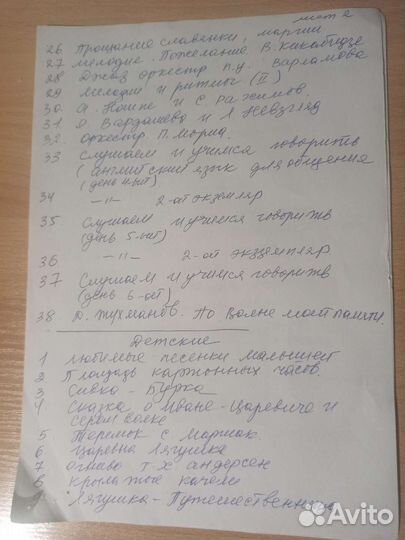 лист 2
26 Прощание славянки, марши
27 мелодия. Пожелание В. Кикабидзе
28 Джаз оркестр п.у. Варламова
29 Мелодии и ритмы (II)
30 и С. Рахимов.
31 Я
32. Оркестр П. Мориа.
33 Слушаем и учимся говорить
(английский язык для общения
(день 4-ый)
34 -"- 2-ой экземляр
35. Слушаем и учимся говорить
(день 5-ый)
36 -"- 2-ой экземпляр
37 Слушаем и учимся говорить
(день 6-ой)
38 Д. Тухманов. По волне моей памяти.
Детские
1 любимые песенки малышей
2 Площадь картонных часов.
3 Сивка - Бурка
4 Сказка о Иване-Царевиче и
Сером волке
5 Теремок С. Маршак.
6 Царевна Лягушка
7 огниво Г Х Андерсен
8 Крылатые качели
9 Лягушка-Путешественница
Avito